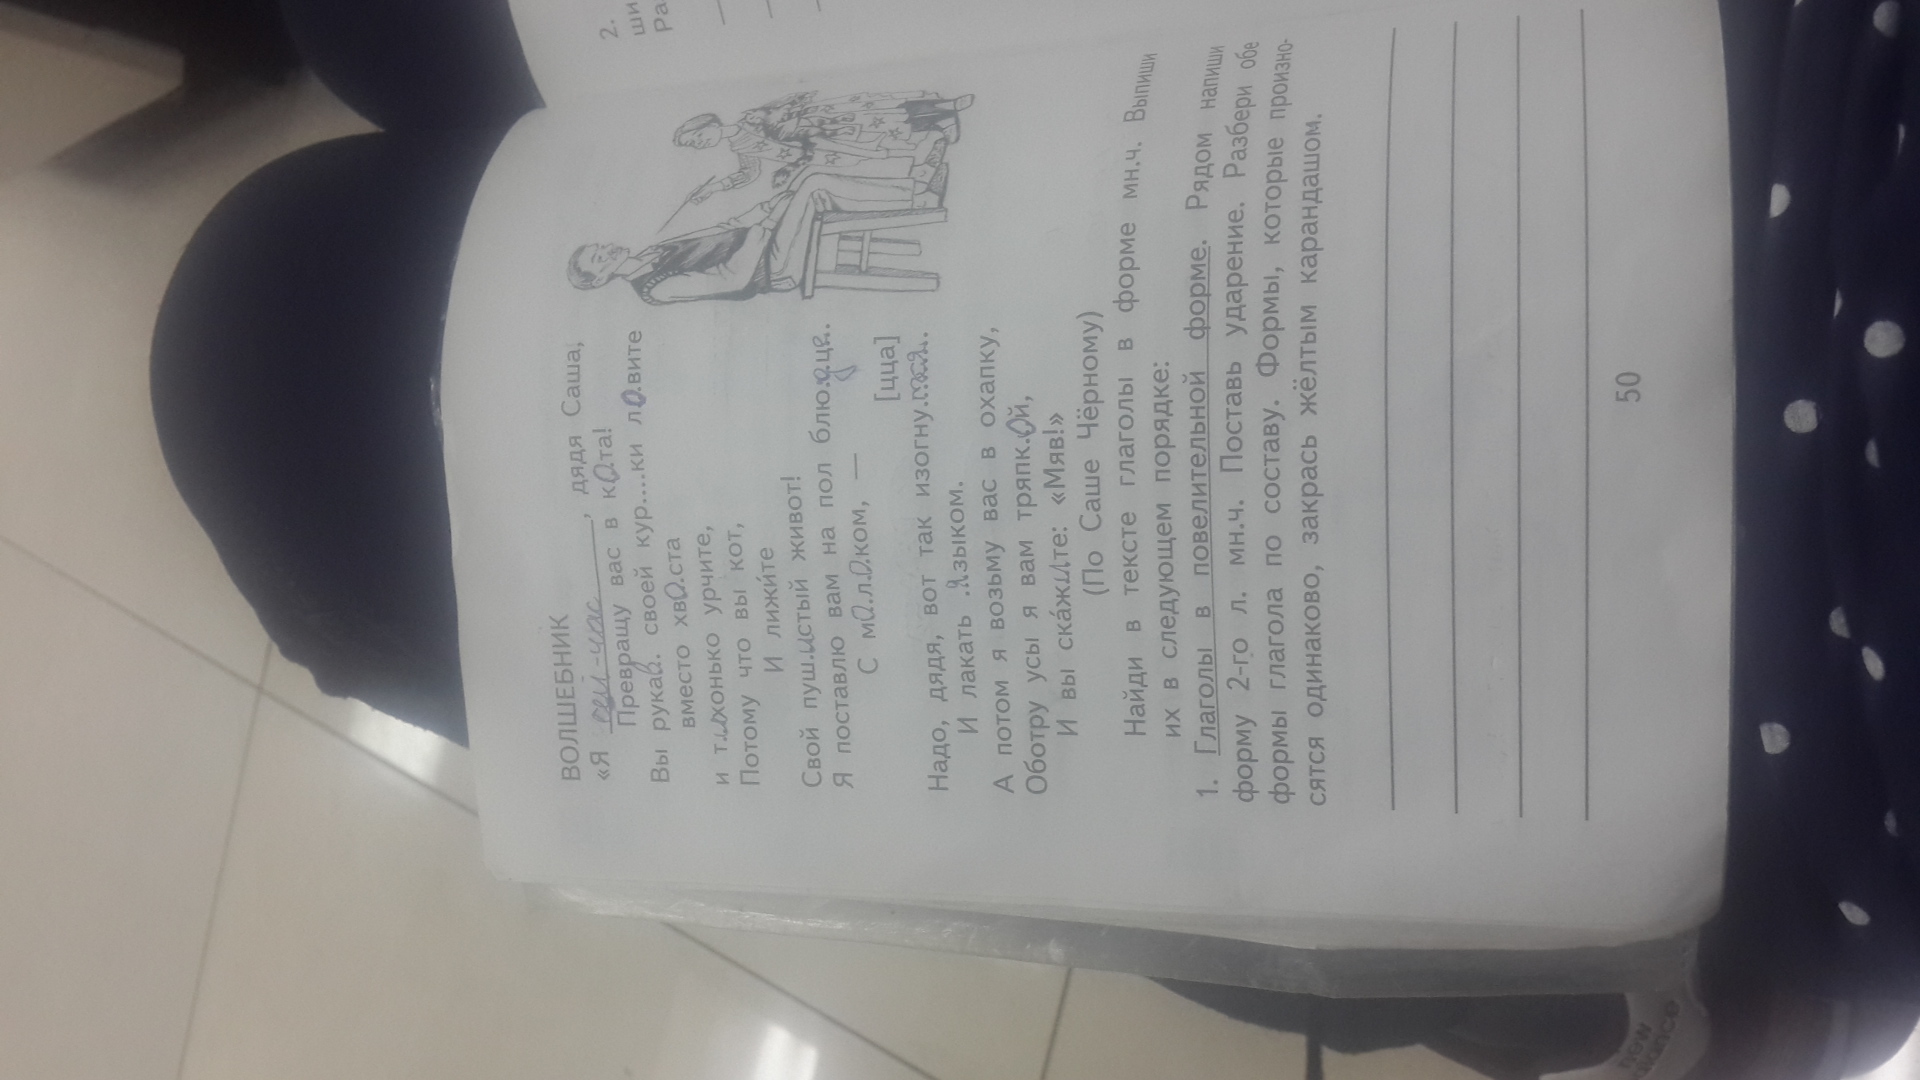 2.
ши
Ра
ВОЛШЕБНИК
«Я сей-час, дядя Саша,
Превращу вас в кота!
Вы рукав. своей кур....ки ло.вите
вместо хво.ста
и тихонько урчите,
Потому что вы кот,
И лижи́те
Свой пуш.истый живот!
Я поставлю вам на пол блю.дце..
С мо.л.о.ком, —
[цца]
Надо, дядя, вот так изогну.тся..
И лакать .языком.
А потом я возьму вас в охапку,
Оботру усы я вам тряпк.ой,
И вы ска́жите: «Мяв!»
(По Саше Чёрному)
Найди в тексте глаголы в форме мн.ч. Выпиши
их в следующем порядке:
1. Глаголы в повелительной форме. Рядом напиши
форму 2-го л. мн.ч. Поставь ударение. Разбери обе
формы глагола по составу. Формы, которые произно-
сятся одинаково, закрась жёлтым карандашом.
50
new
balance